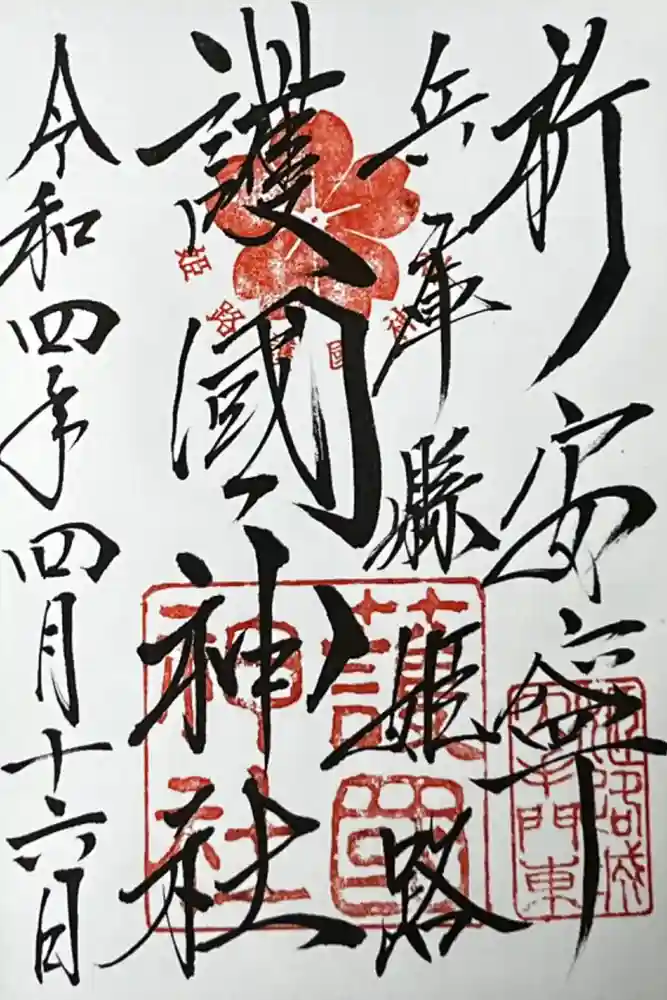 祈安寧
兵庫縣姫路
護國神社
令和四年四月十六日
姫路護國神社
護國神社
姫路城
門東